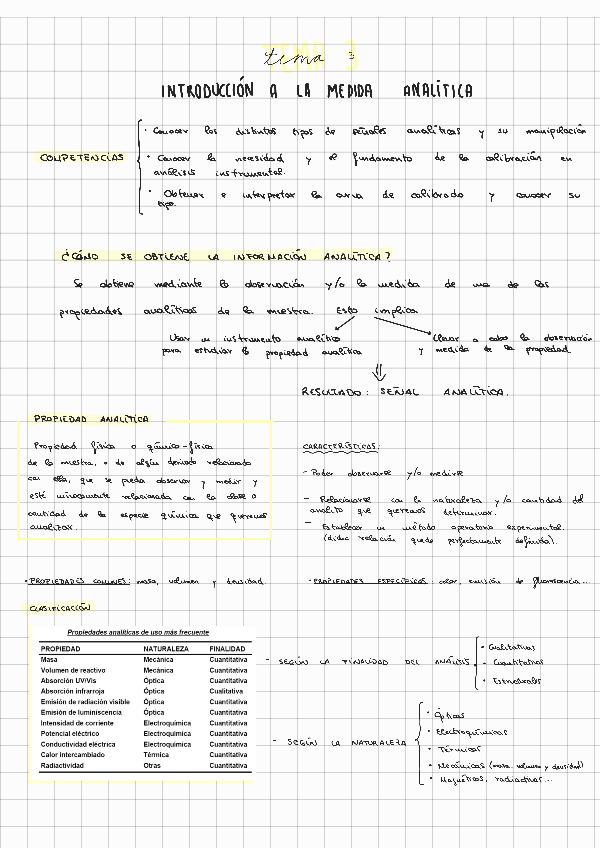 tema 3
INTRODUCCIÓN A LA MEDIDA ANALÍTICA
COMPETENCIAS
· Conocer los distintos tipos de señales analíticas y su manipulación
· Conocer la necesidad y el fundamento de la calibración en
análisis instrumental.
· Obtener e interpretar la curva de calibrado y conocer su
tipo.
¿CÓMO SE OBTIENE LA INFORMACIÓN ANALÍTICA?
Se obtiene mediante la observación y/o la medida de una de las
propiedades analíticas de la muestra. Esto implica
Usar un instrumento analítico
para estudiar la propiedad analítica
llevar a cabo la observación
y medida de la propiedad
RESULTADO: SEÑAL ANALÍTICA.
PROPIEDAD ANALÍTICA
Propiedad física o químico-física
de la muestra, o de algún derivado relacionado
con ella, que se pueda observar y medir y
esté unívocamente relacionada con la clase o
cantidad de la especie química que queremos
analizar.
CARACTERÍSTICAS:
- Poder observarse y/o medirse
- Relacionarse con la naturaleza y/o cantidad del
analito que queremos determinar.
- Establecer un método operatorio experimental.
(dicha relación quede perfectamente definida).
· PROPIEDADES COMUNES: masa, volumen y densidad.
· PROPIEDADES ESPECÍFICAS: color, emisión de fluorescencia...
CLASIFICACIÓN
Propiedades analíticas de uso más frecuente
PROPIEDAD NATURALEZA FINALIDAD
Masa Mecánica Cuantitativa
Volumen de reactivo Mecánica Cuantitativa
Absorción UV/Vis Óptica Cuantitativa
Absorción infrarroja Óptica Cualitativa
Emisión de radiación visible Óptica Cuantitativa
Emisión de luminescencia Óptica Cuantitativa
Intensidad de corriente Electroquímica Cuantitativa
Potencial eléctrico Electroquímica Cuantitativa
Conductividad eléctrica Electroquímica Cuantitativa
Calor intercambiado Térmica Cuantitativa
Radiactividad Otras Cuantitativa
- SEGÚN LA FINALIDAD DEL ANÁLISIS
· Cualitativas
· Cuantitativas
· Estructurales
- SEGÚN LA NATURALEZA
· Ópticas
· Electroquímicas
· Térmicas
· Mecánicas (masa, volumen y densidad)
· Magnéticas, radiactivas...